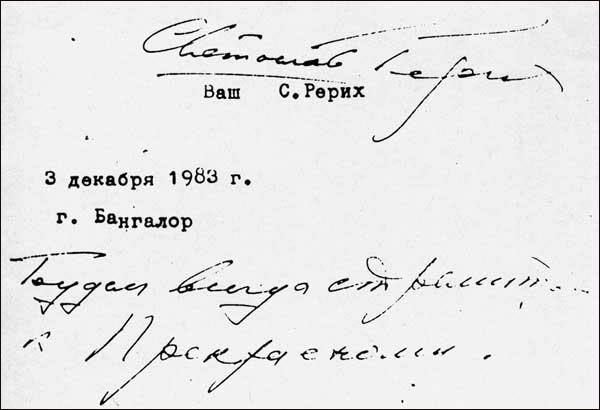 Святослав Рерих
Ваш С.Рерих
3 декабря 1983 г.
г. Бангалор
Будем всегда стремит...
к Прекрасному.